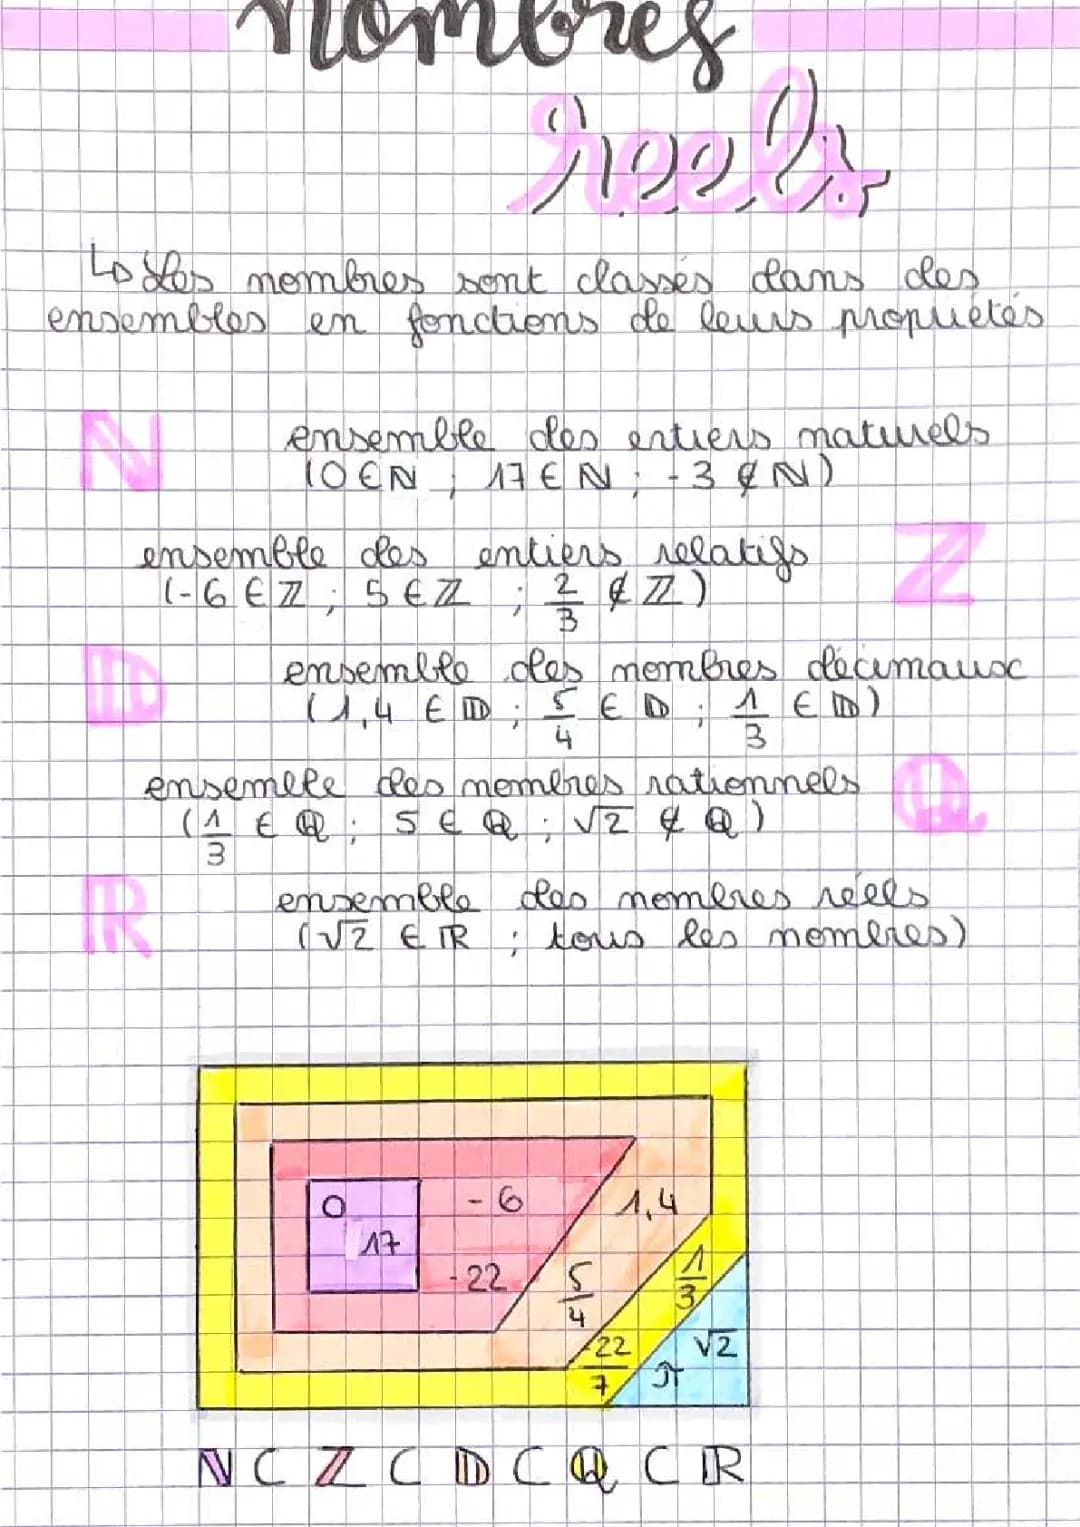 nombres
réels
↳ Les nombres sont classés dans des
ensembles en fonctions de leurs propriétés
N
ensemble des entiers naturels
(0 ∈ ℕ ; 17 ∈ ℕ ; -3 ∉ ℕ)
ensemble des entiers relatifs
Z
(-6 ∈ ℤ ; 5 ∈ ℤ ; 2/3 ∉ ℤ)
ID
ensemble des nombres décimaux
(1,4 ∈ ID ; 5/4 ∈ ID ; 1/3 ∈ ID)
ensemble des nombres rationnels
Q
(1/3 ∈ ℚ ; 5 ∈ ℚ ; √2 ∉ ℚ)
IR
ensemble des nombres réels
(√2 ∈ IR ; tous les nombres)
0 -6 1,4
17
-22 5/4 1/3
22/7 π √2
ℕ ⊂ ℤ ⊂ ID ⊂ ℚ ⊂ IR